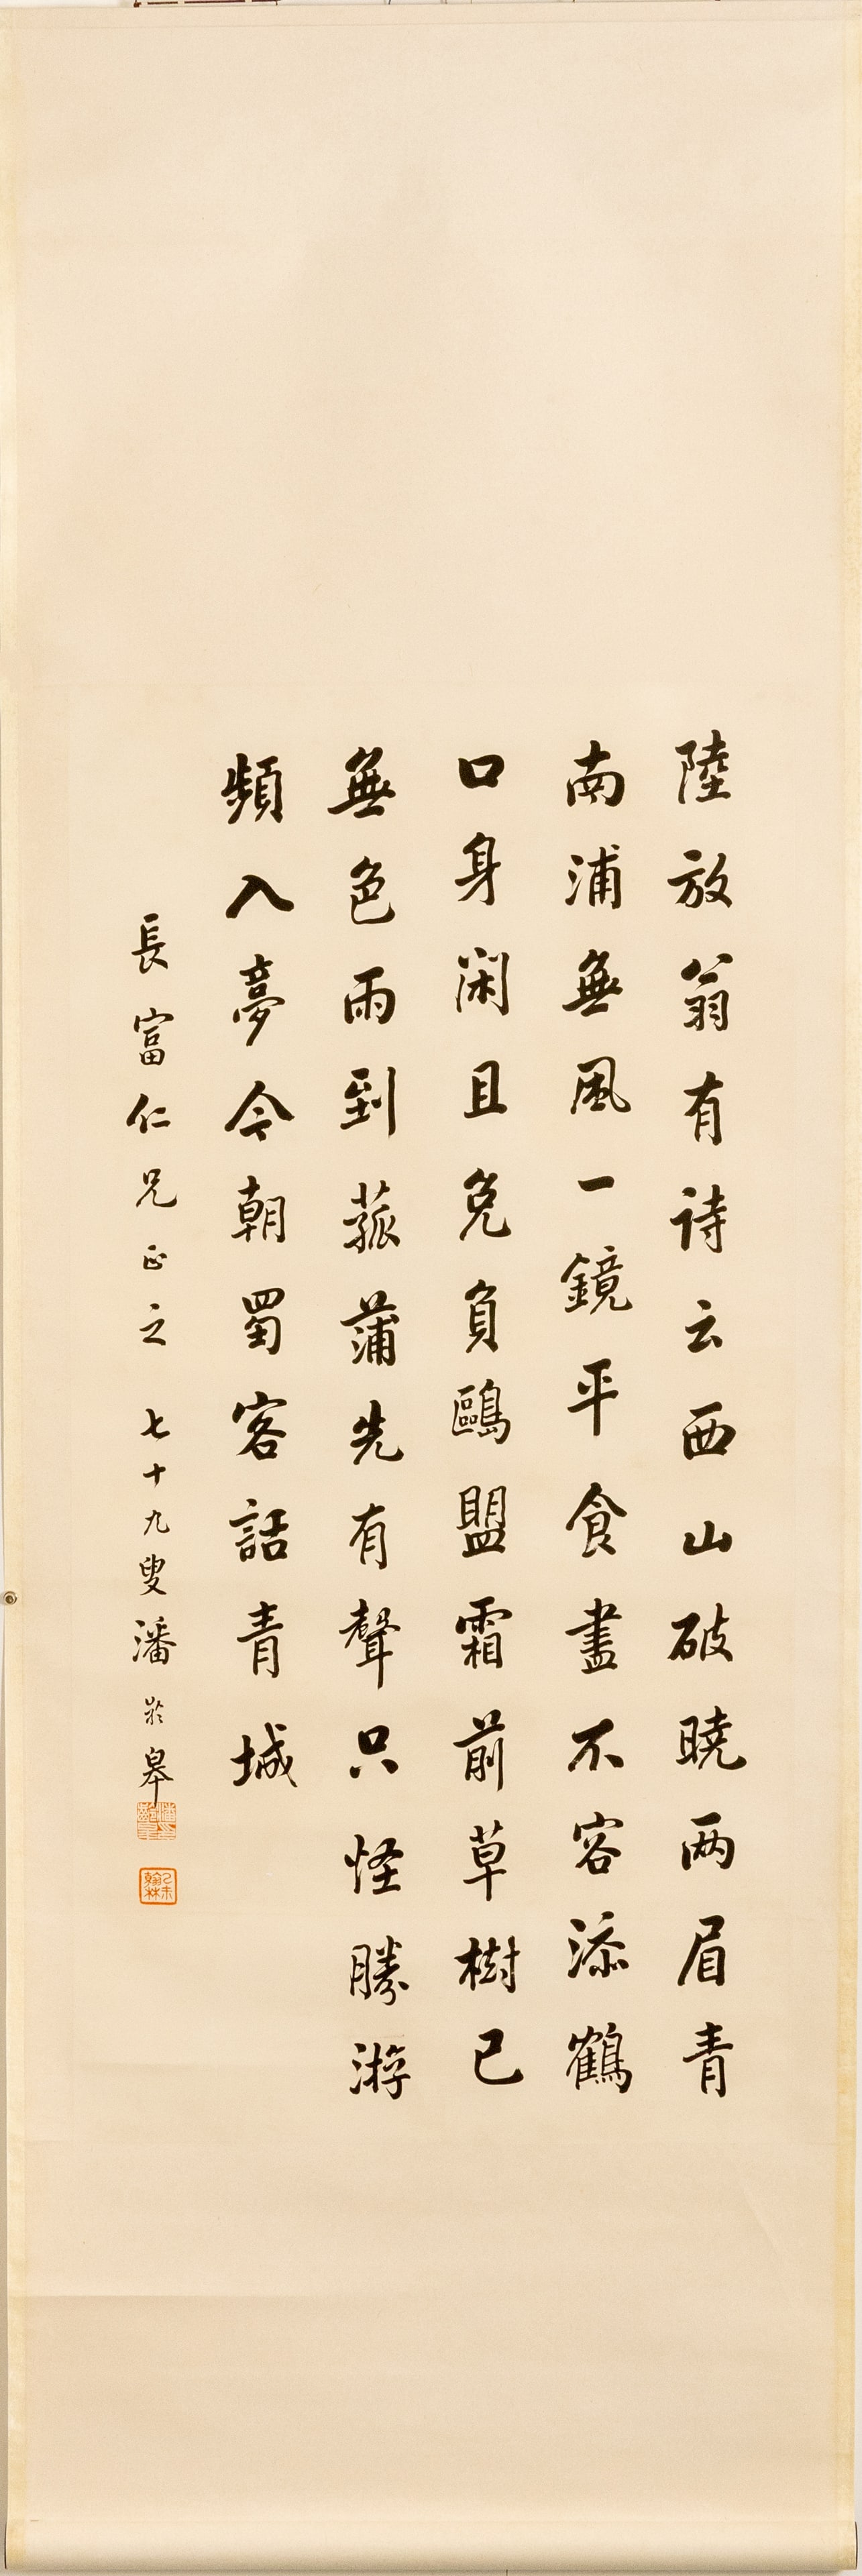 陸放翁有诗云西山破曉两眉青
南浦無風一鏡平食盡不容添鶴
口身闲且免負鷗盟霜前草樹已
無色雨到菰蒲先有聲只怪勝游
頻入夢今朝蜀客話青城
長富仁兄正之 七十九叟潘齡皋
潘齡皋印
乙未翰林